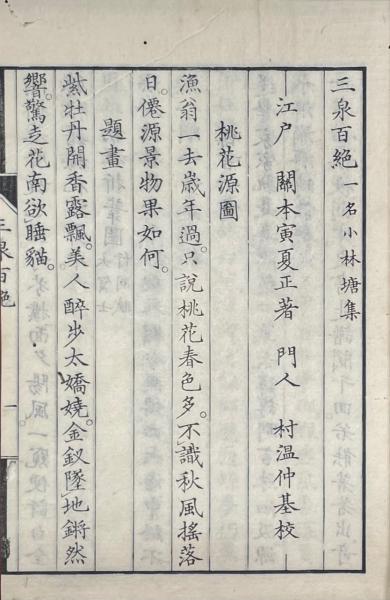 三泉百絕 一名小林塘集
江户 關本寅夏正著 門人 村溫仲基校
桃花源圖
漁翁一去歲年過。只說桃花春色多。不識秋風搖落
日。僊源景物果如何。
題畫
紫牡丹開香露飄。美人醉步太嬌嬈。金釵墜地鏘然
響。驚走花南欲睡貓。
三泉百絕
一